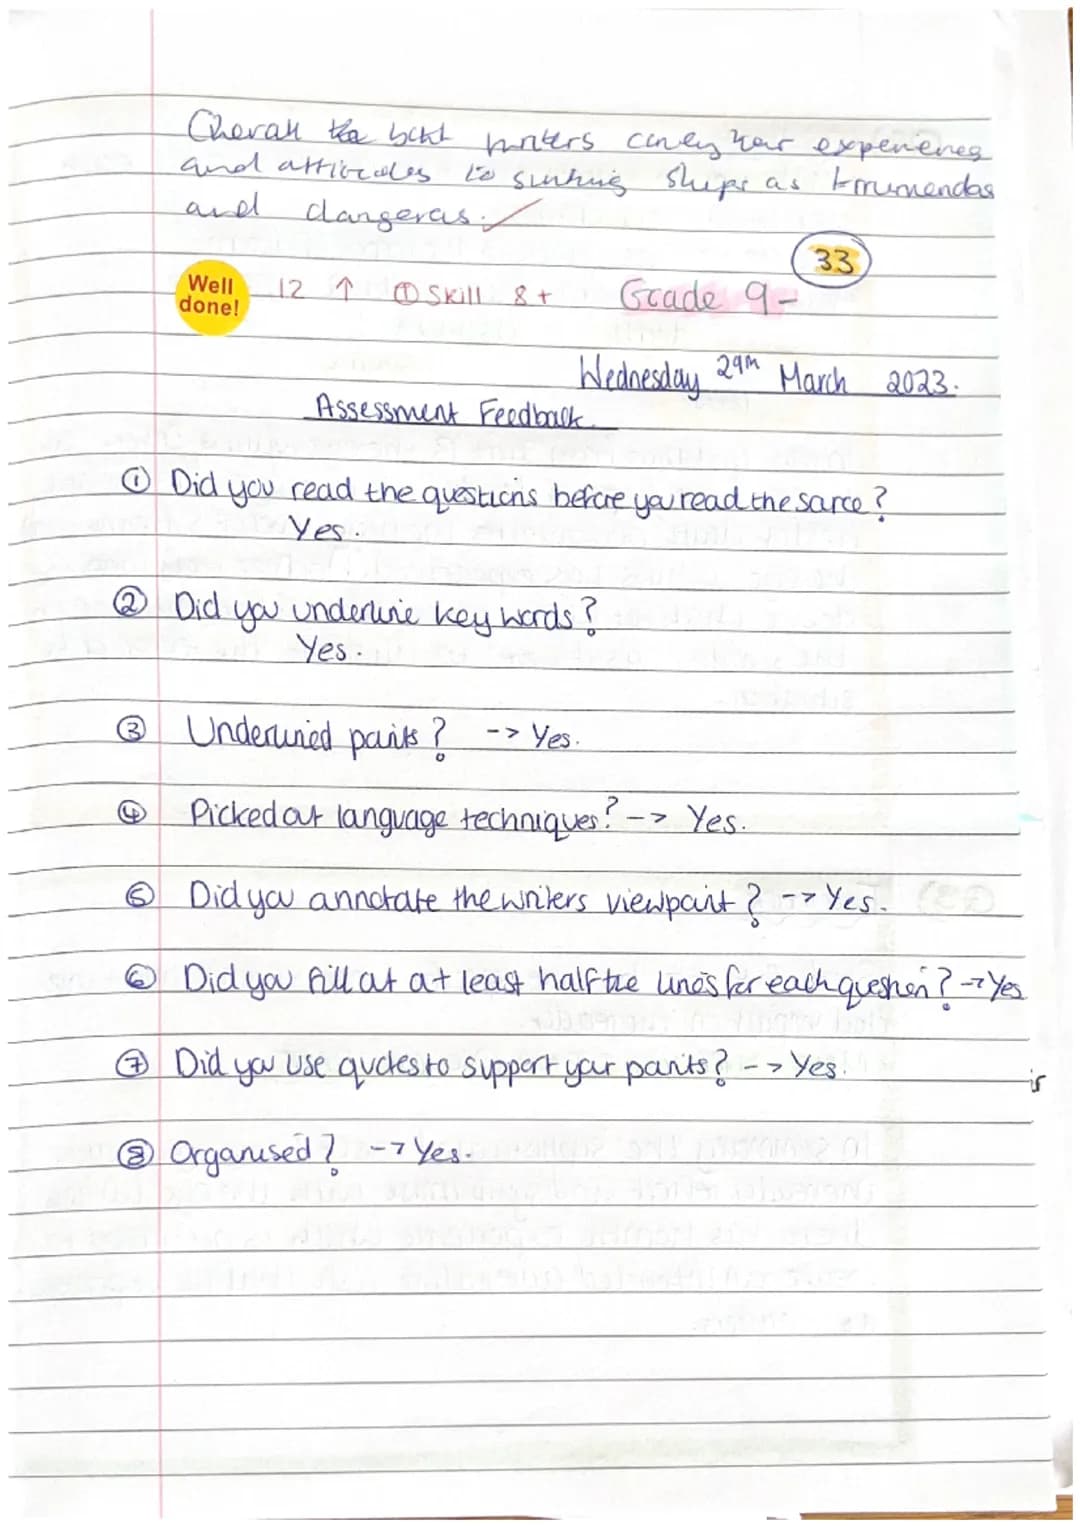 Overall the both writers convey their experiences
and attitudes to sinking ships as tremendos
and dangeros.
33
Well
done!
12 ↑ ① Skill 8+ Grade 9-
Wednesday 29th March 2023.
Assessment Feedback.
① Did you read the questions before you read the source?
Yes.
② Did you underline key words?
Yes.
③ Underlined points? -> Yes.
④ Picked out language techniques? -> Yes.
⑤ Did you annotate the writers viewpoint? -> Yes.
⑥ Did you fill out at least half the lines for each question? -> Yes
⑦ Did you use quotes to support your points? -> Yes.
is
⑧ Organised? -> Yes.